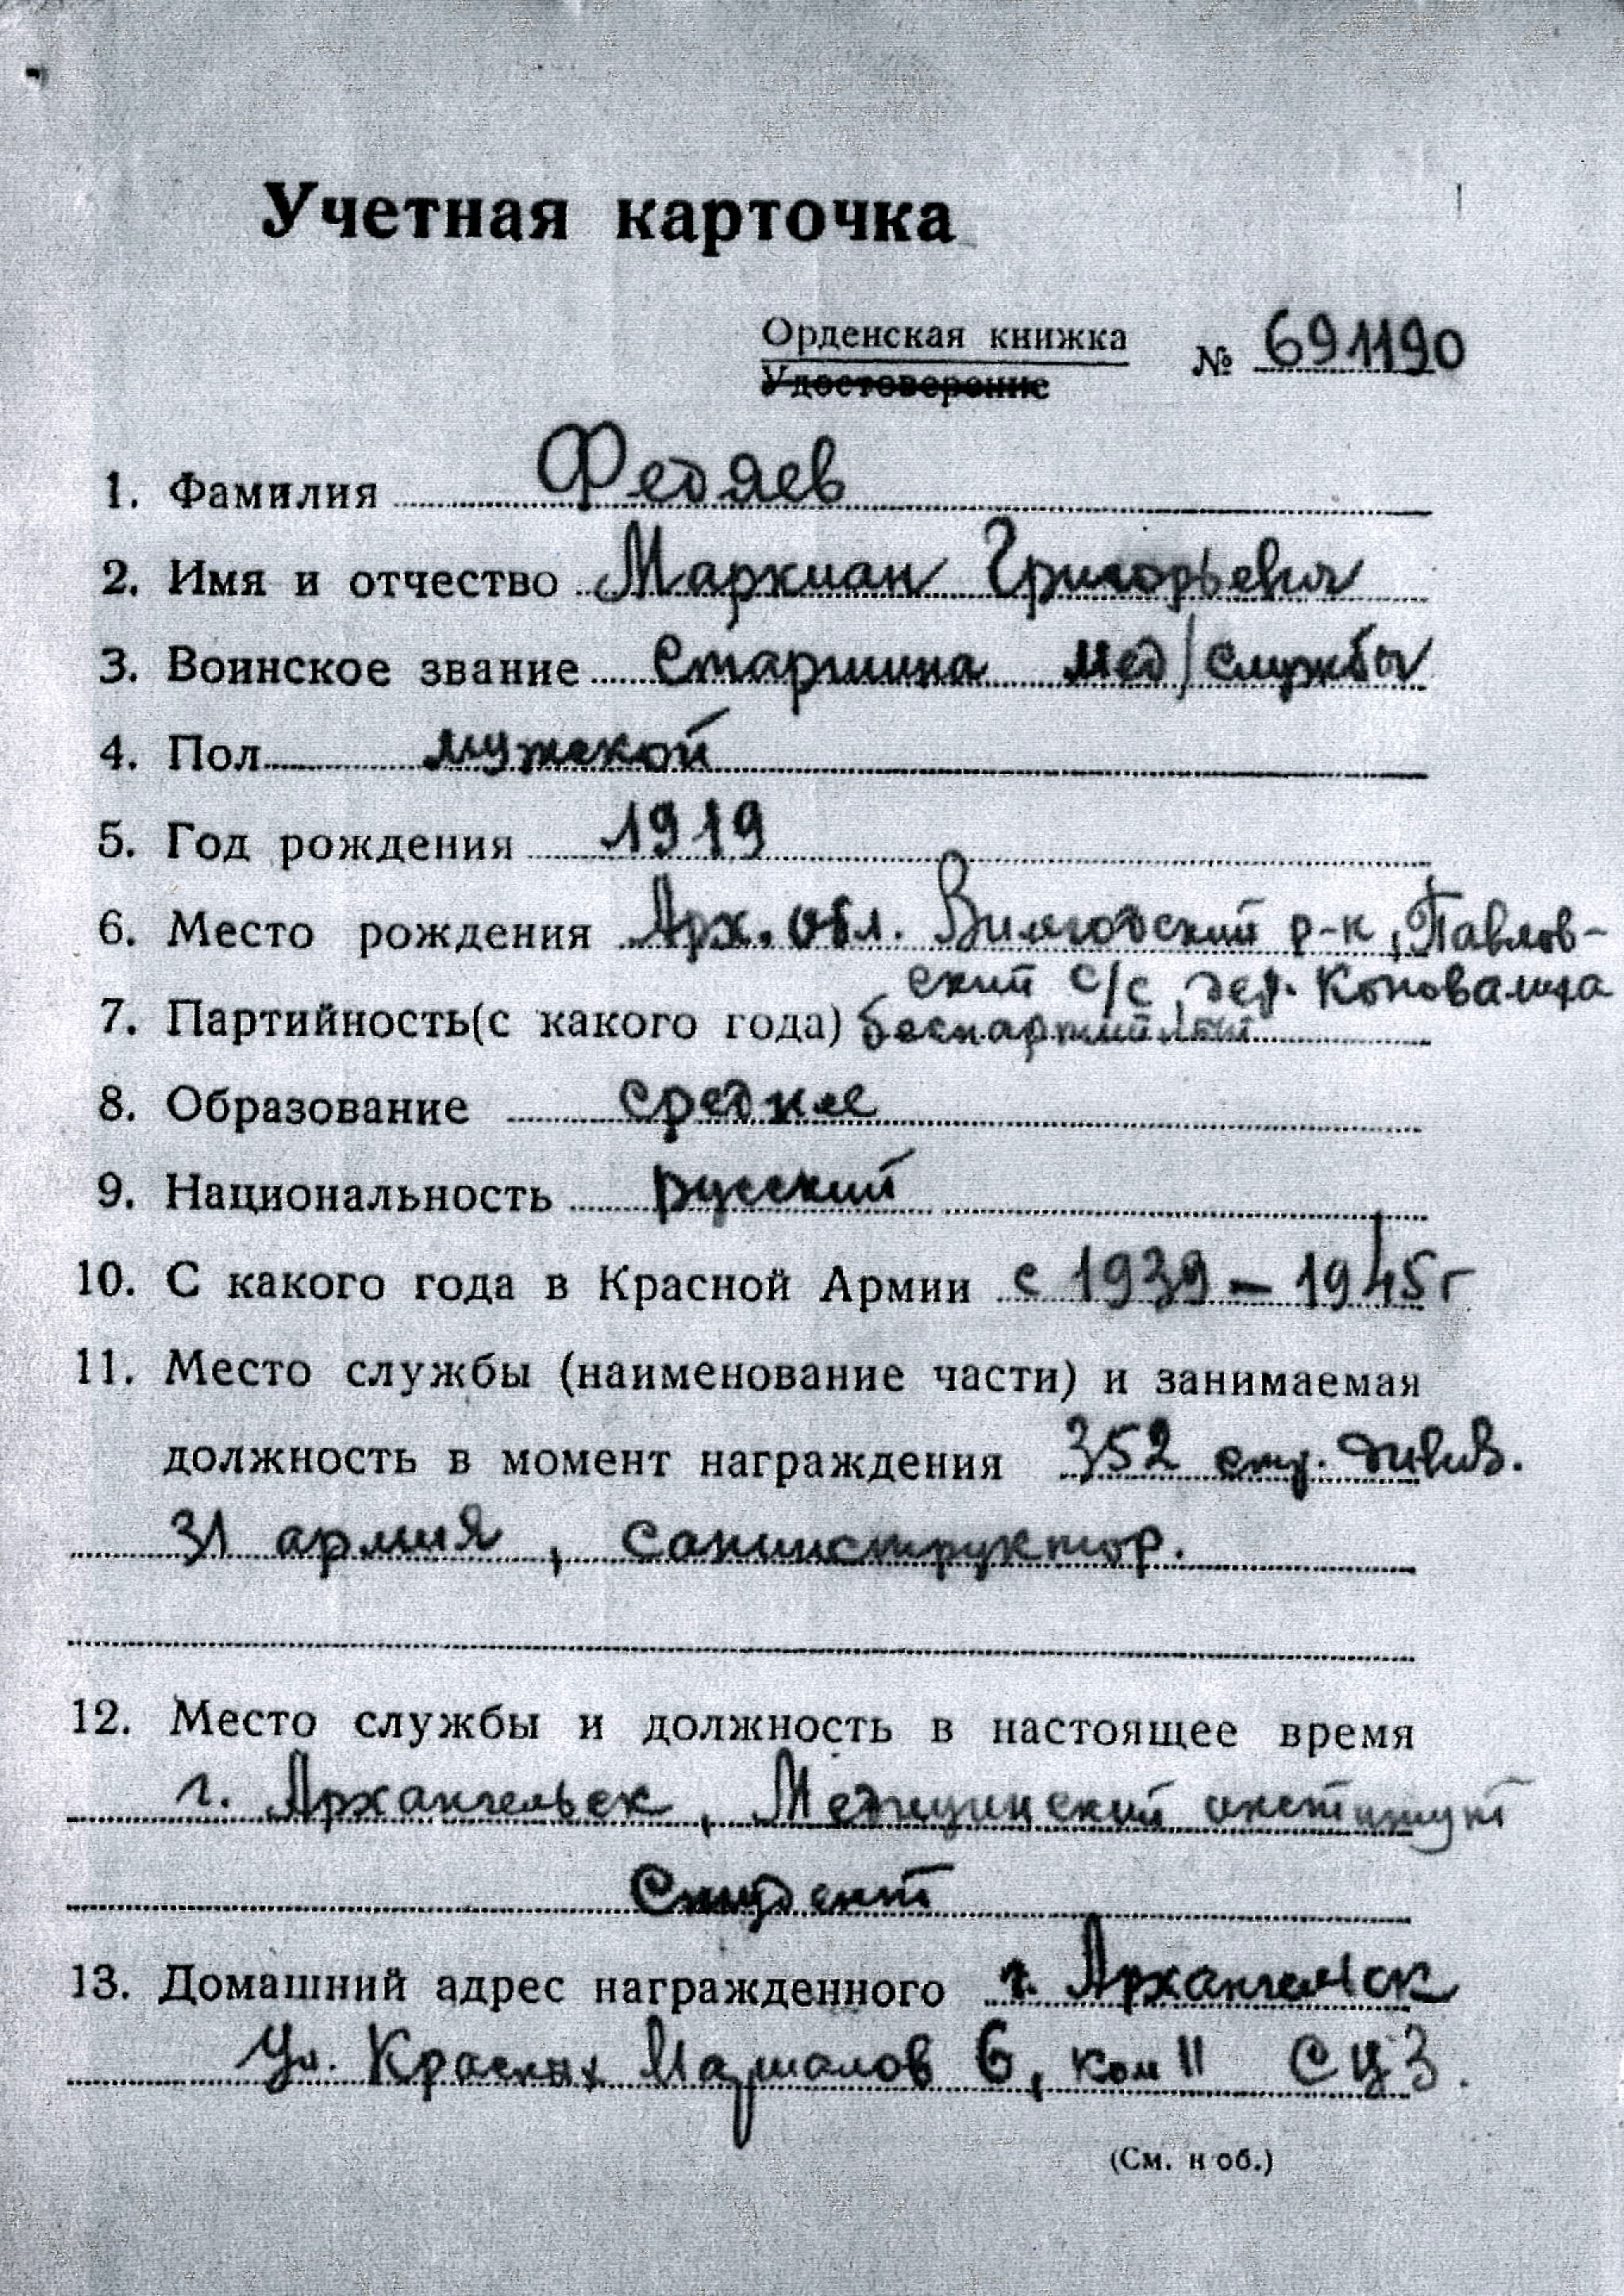 Учетная карточка
Орденская книжка № 691190
Удостоверение
1. Фамилия Федяев
2. Имя и отчество Маркиан Григорьевич
3. Воинское звание Старшина мед/службы
4. Пол мужской
5. Год рождения 1919
6. Место рождения Арх. обл. Вилегодский р-к, Павлов-
ский с/с, дер. Коновалиха
7. Партийность(с какого года) беспартийный
8. Образование среднее
9. Национальность русский
10. С какого года в Красной Армии с 1939 – 1945 г
11. Место службы (наименование части) и занимаемая
должность в момент награждения 352 стр. дивиз.
31 армия, Санинструктор.
12. Место службы и должность в настоящее время
г. Архангельск, Медицинский институт
Студент
13. Домашний адрес награжденного г. Архангельск
Ул. Красных Маршалов 6, ком 11 СЦЗ.
(См. н об.)